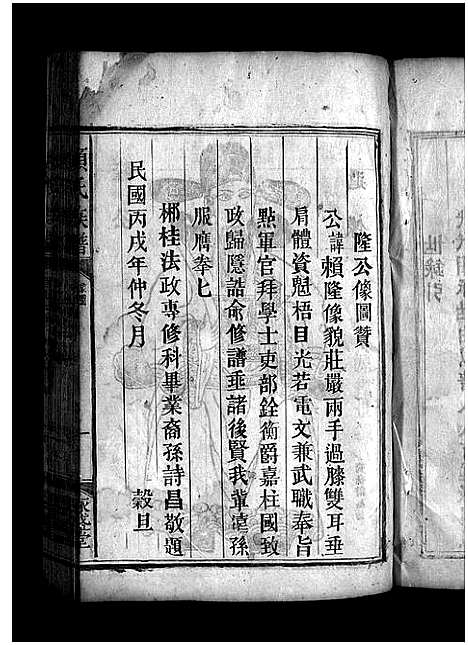 隆公像圖贊
公諱賴隆像貌莊嚴兩手過膝雙耳垂
肩體資魁梧目光若電文兼武職奉旨
點軍官拜學士吏部銓衡爵嘉柱國致
政歸隱誥俞修譜垂諸後賢我輩遠孫
服膺奉七
梛桂法政專修科畢業裔孫詩昌敬題
民國丙戌年仲冬月 穀旦
世錄引